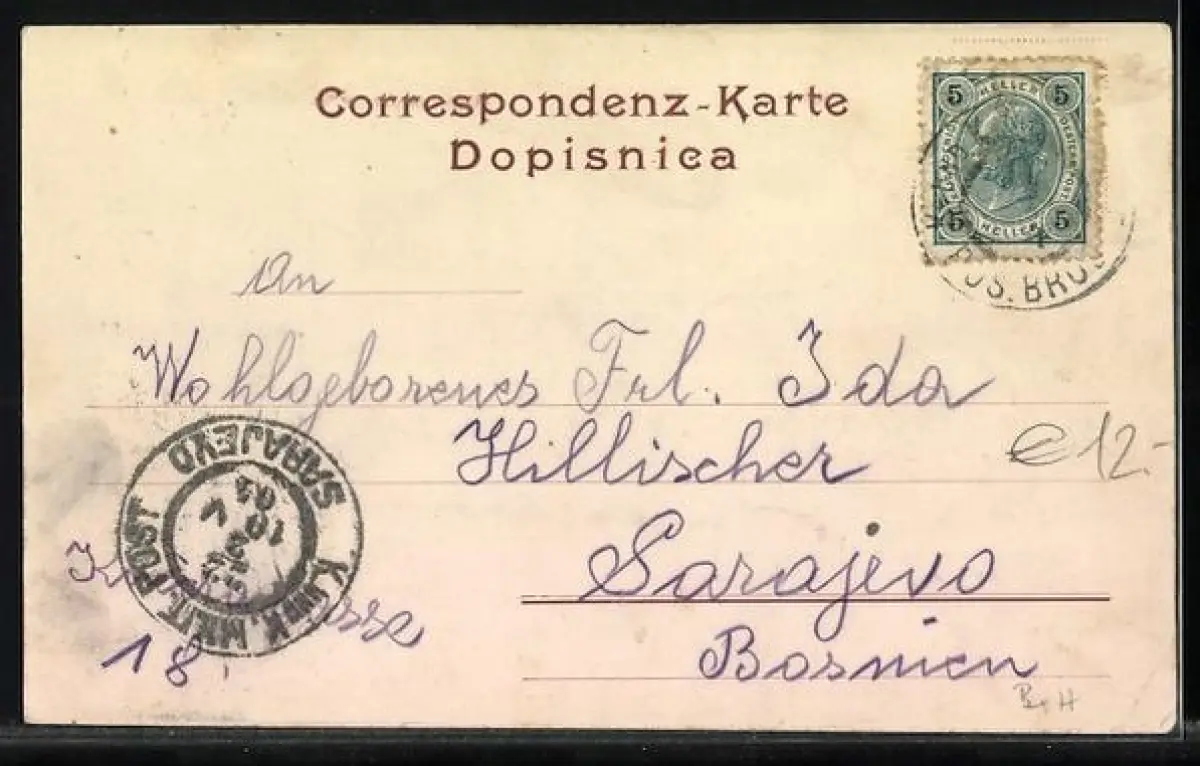 Correspondenz-Karte
Dopisnica
5 HELLER 5
5 HELLER 5
POS. BRO
An
Wohlgeborenes Frl. Ida
Hillischer
€ 12.-
SARAJEVO
K. UND K. MILIT. POST
10
Sarajevo
18.
Bosnien
B. H